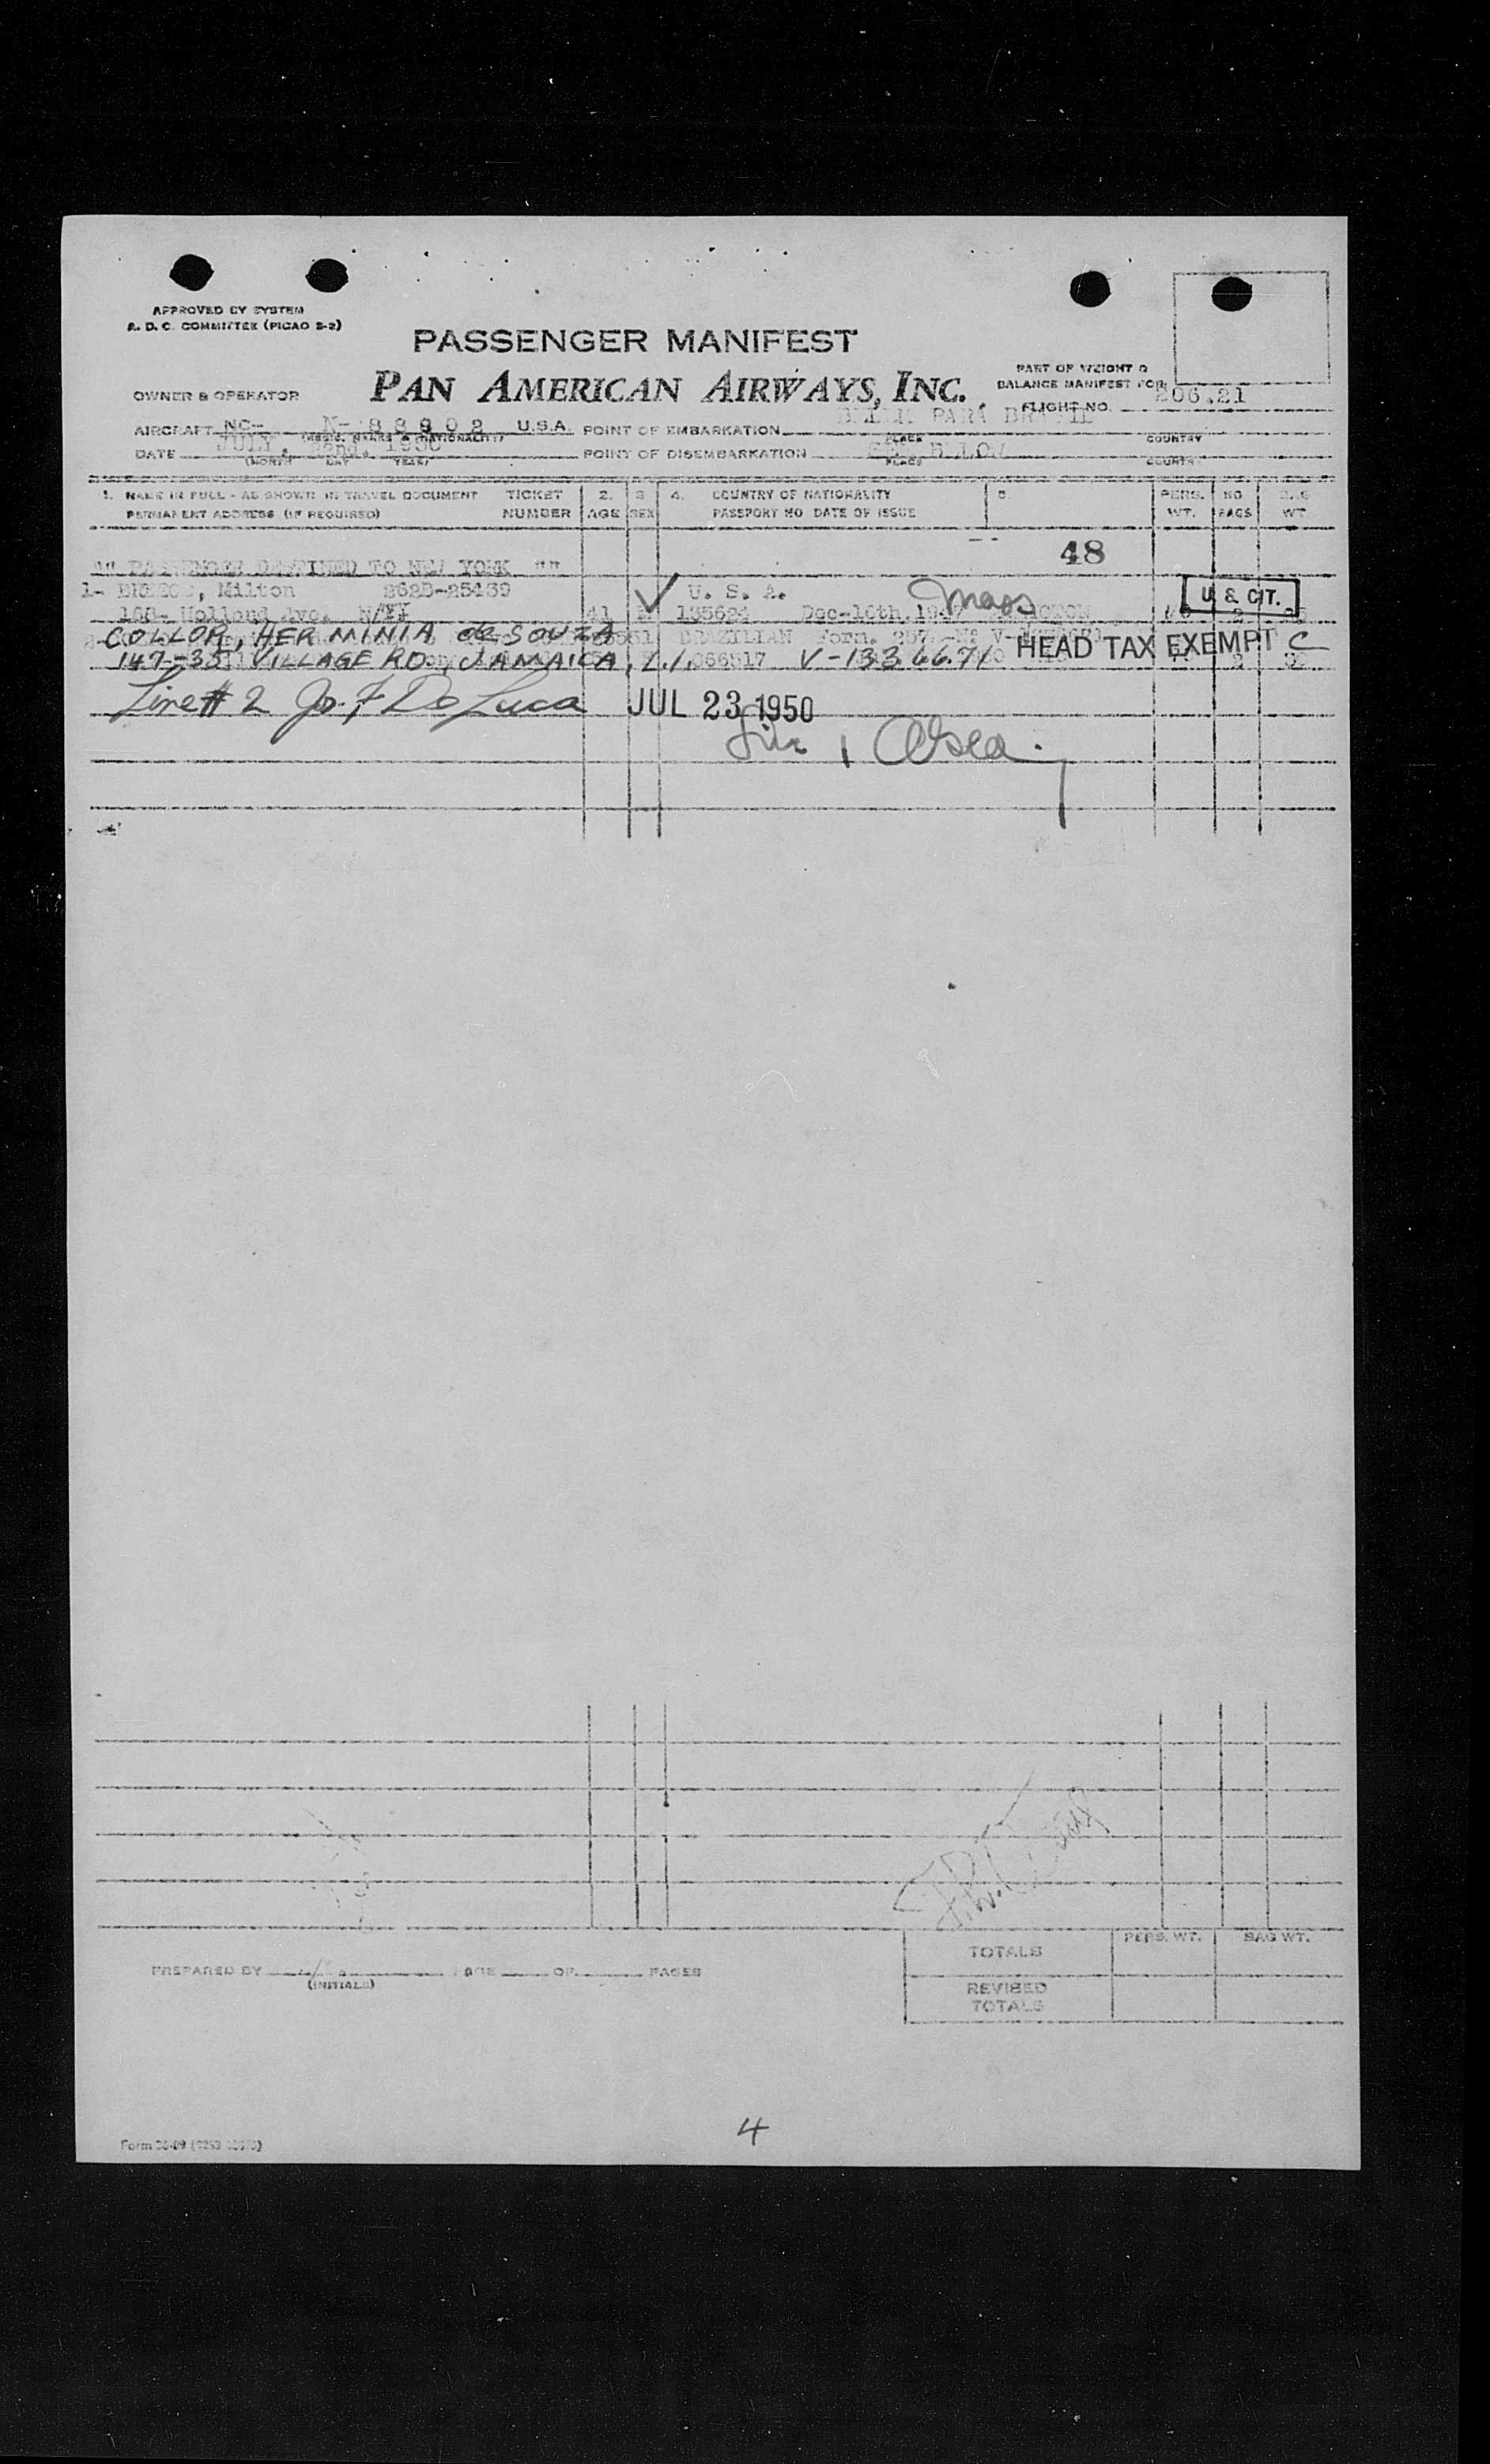 APPROVED BY SYSTEM
A. D. C. COMMITTEE (PICAO S-2)
PASSENGER MANIFEST
OWNER & OPERATOR PAN AMERICAN AIRWAYS, INC.
PART OF WEIGHT &
BALANCE MANIFEST FOR
FLIGHT NO. 206.21
AIRCRAFT NC- N-88902 U.S.A. POINT OF EMBARKATION PARA
(REGIS. MARKS & NATIONALITY) PLACE COUNTRY
DATE JULY, 1950 POINT OF DISEMBARKATION
(MONTH DAY YEAR) PLACE COUNTRY
1. NAME IN FULL - AS SHOWN IN TRAVEL DOCUMENT TICKET 2. 3 4. COUNTRY OF NATIONALITY 5. PERS. NO BAG
PERMANENT ADDRESS (IF REQUIRED) NUMBER AGE SEX PASSPORT NO DATE OF ISSUE WT. BAGS WT
48
"" PASSENGER DESTINED TO NEW YORK ""
1- Milton 262B-25439 ✓ U. S. A. Mass U. S. CIT.
168- Holland Ave. N/YY 41 M 135624 Dec-10th.194 2
COLLOR, HERMINIA de SOUZA BRAZILIAN Form. 257 HEAD TAX EXEMPT C
147-35 VILLAGE RD., JAMAICA, L.I. 066517 V-1336671 2
Line # 2 Jo. F De Luca JUL 23 1950
Line 1
TOTALS PERS. WT. BAG WT.
PREPARED BY PAGE OF PAGES
(INITIALS)
REVISED
TOTALS
4